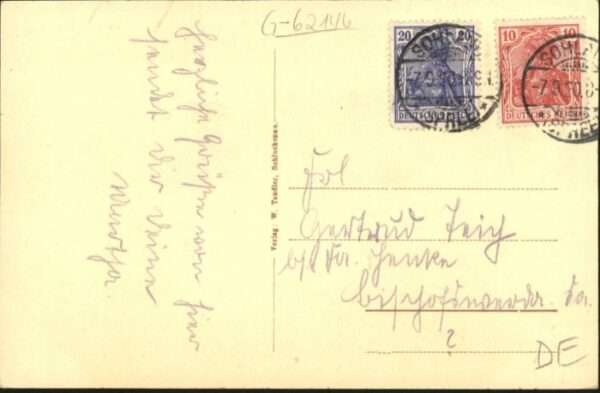 G-62146
Herzliche Grüße von hier
sendet Dir Deine
Martha.
Verlag W. Tandler, Schluckenau.
20 20
DEUTSCHES REICH
10 10
DEUTSCHES REICH
SOHLA
(SPREE)
SOHLA
(SPREE)
Frl
Gertrud Teich
b/ Fa. Henke
Bischofswerda. Sa.
?
DE